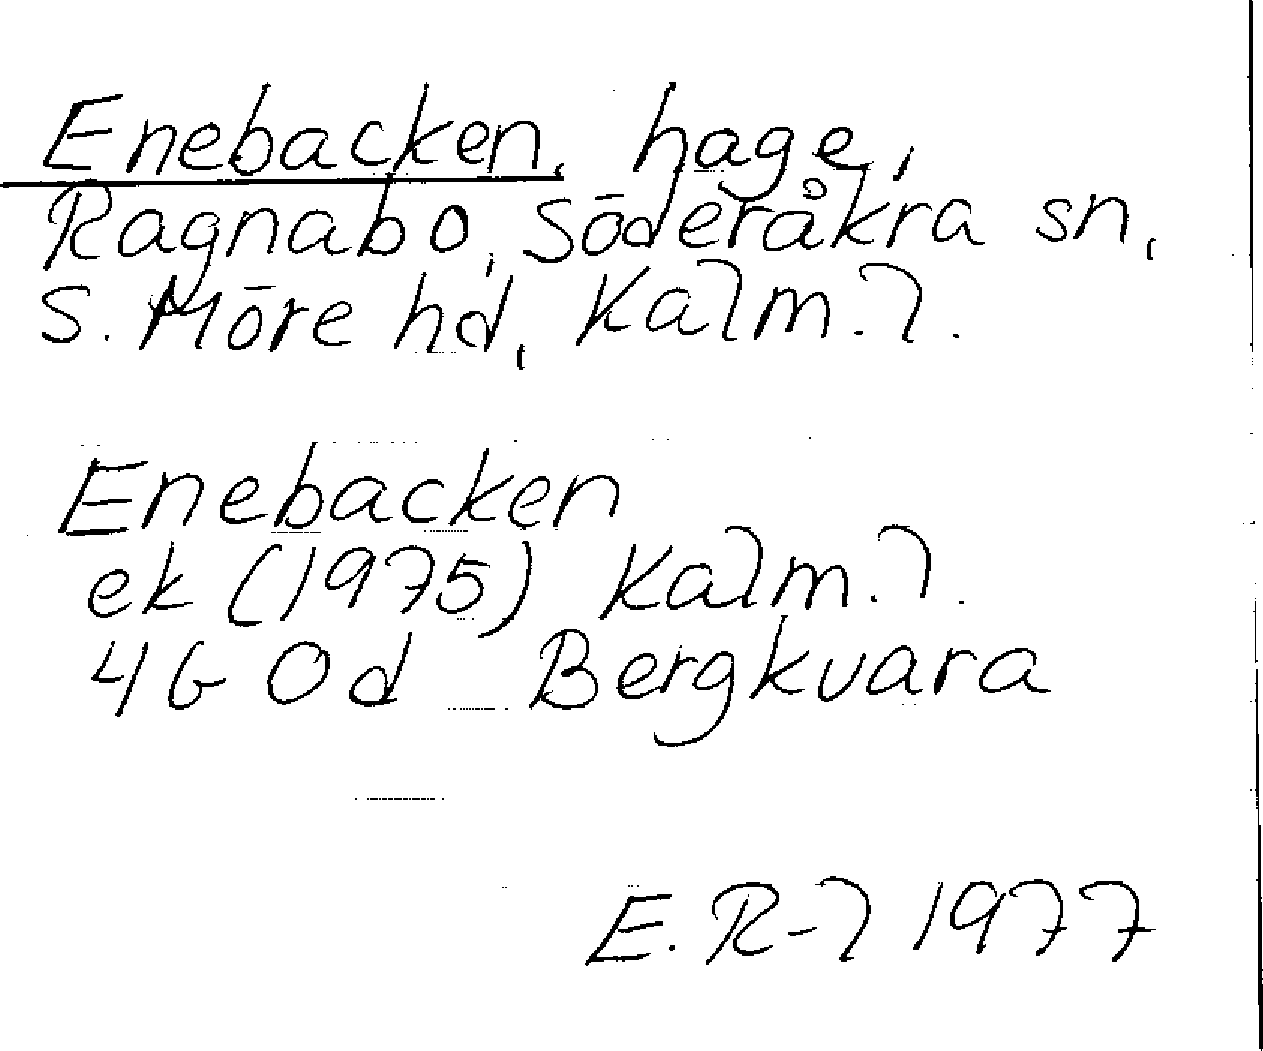 Enebacken, hage,
Ragnabo, Söderåkra sn,
S. Möre hd, Kalm. l.
Enebacken
ek (1975) Kalm. l.
4G 0d Bergkvara
E. R-l 1977